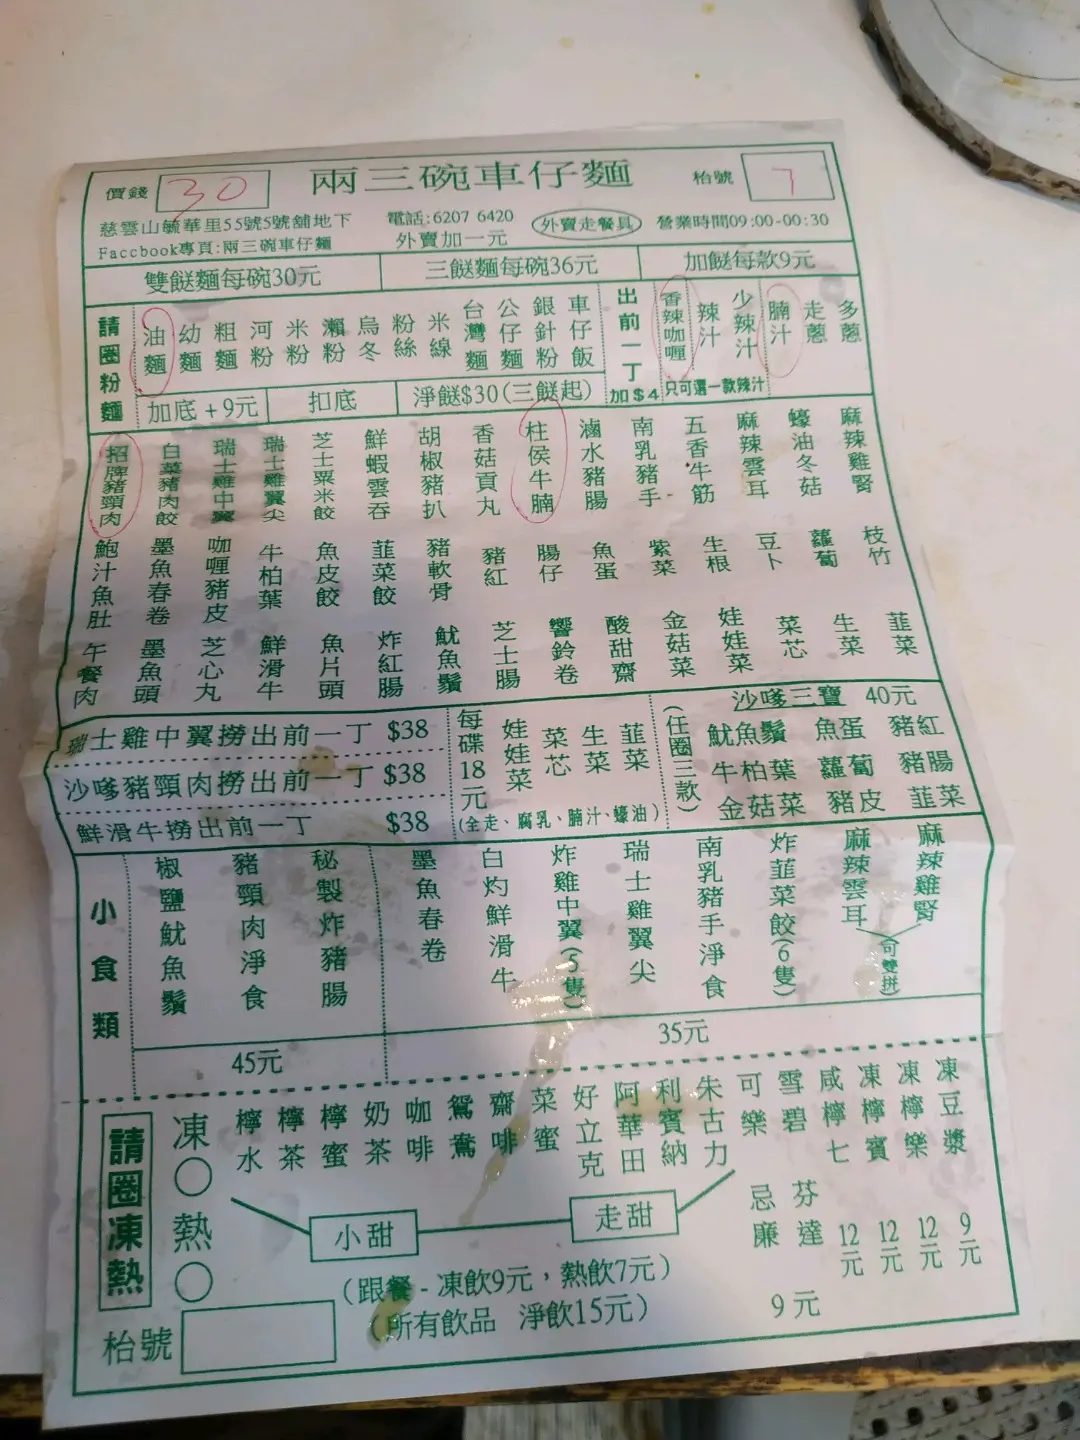 價錢 30 兩三碗車仔麵 枱號 7
慈雲山毓華里55號5號舖地下 電話:6207 6420 外賣走餐具 營業時間09:00-00:30
Faccbook專頁:兩三碗車仔麵 外賣加一元
雙餸麵每碗30元 三餸麵每碗36元 加餸每款9元
請圈粉麵 油麵 幼麵 粗麵 河粉 米粉 瀨粉 烏冬 粉絲 米線 台灣麵 公仔麵 銀針粉 車仔飯 出前一丁加$4 香辣咖喱 辣汁 少辣汁 腩汁 走蔥 多蔥
只可選一款辣汁
加底+9元 扣底 淨餸$30(三餸起)
招牌豬頸肉 白菜豬肉餃 瑞士雞中翼 瑞士雞翼尖 芝士粟米餃 鮮蝦雲吞 胡椒豬扒 香菇貢丸 柱侯牛腩 滷水豬腸 南乳豬手 五香牛筋 麻辣雲耳 蠔油冬菇 麻辣雞腎
鮑汁魚肚 墨魚春卷 咖喱豬皮 牛柏葉 魚皮餃 韮菜餃 豬軟骨 豬紅 腸仔 魚蛋 紫菜 生根 豆卜 蘿蔔 枝竹
午餐肉 墨魚頭 芝心丸 鮮滑牛 魚片頭 炸紅腸 魷魚鬚 芝士腸 響鈴卷 酸甜齋 金菇菜 娃娃菜 菜芯 生菜 韮菜
瑞士雞中翼撈出前一丁 $38
沙嗲豬頸肉撈出前一丁 $38
鮮滑牛撈出前一丁 $38
每碟18元 娃娃菜 菜芯 生菜 韮菜
(全走、腐乳、腩汁、蠔油)
沙嗲三寶 40元
(任圈三款)
魷魚鬚 魚蛋 豬紅
牛柏葉 蘿蔔 豬腸
金菇菜 豬皮 韮菜
小食類 椒鹽魷魚鬚 豬頸肉淨食 秘製炸豬腸 墨魚春卷 白灼鮮滑牛 炸雞中翼(5隻) 瑞士雞翼尖 南乳豬手淨食 炸韮菜餃(6隻) 麻辣雲耳 麻辣雞腎 (可雙拼)
45元 35元
請圈凍熱 凍 熱 檸水 檸茶 檸蜜 奶茶 咖啡 鴛鴦 齋啡 菜蜜 好立克 阿華田 利賓納 朱古力 可樂 雪碧 咸檸七 凍檸賓 凍檸樂 凍豆漿
小甜 走甜 忌廉 芬達 12元 12元 12元 9元
(跟餐-凍飲9元，熱飲7元)
(所有飲品 淨飲15元) 9元
枱號